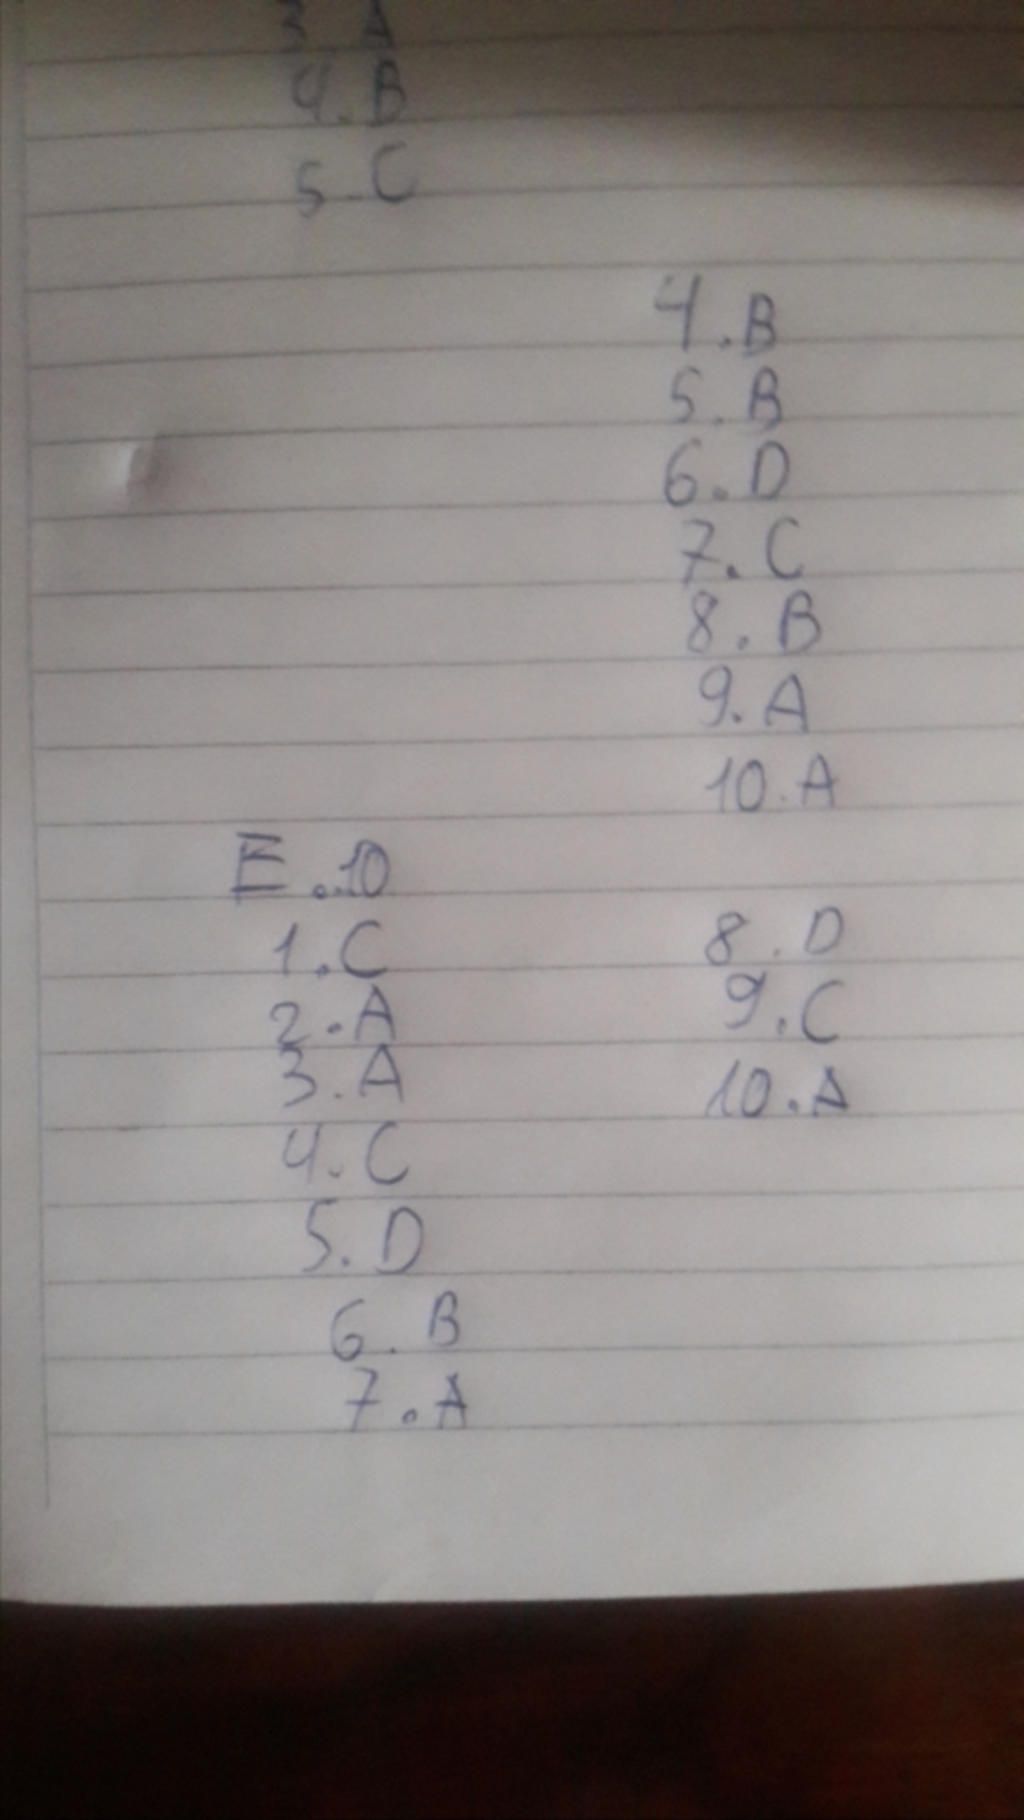 3. A
4. B
5. C
4. B
5. B
6. D
7. C
8. B
9. A
10. A
E. 10
1. C
2. A
3. A
4. C
5. D
6. B
7. A
8. D
9. C
10. A